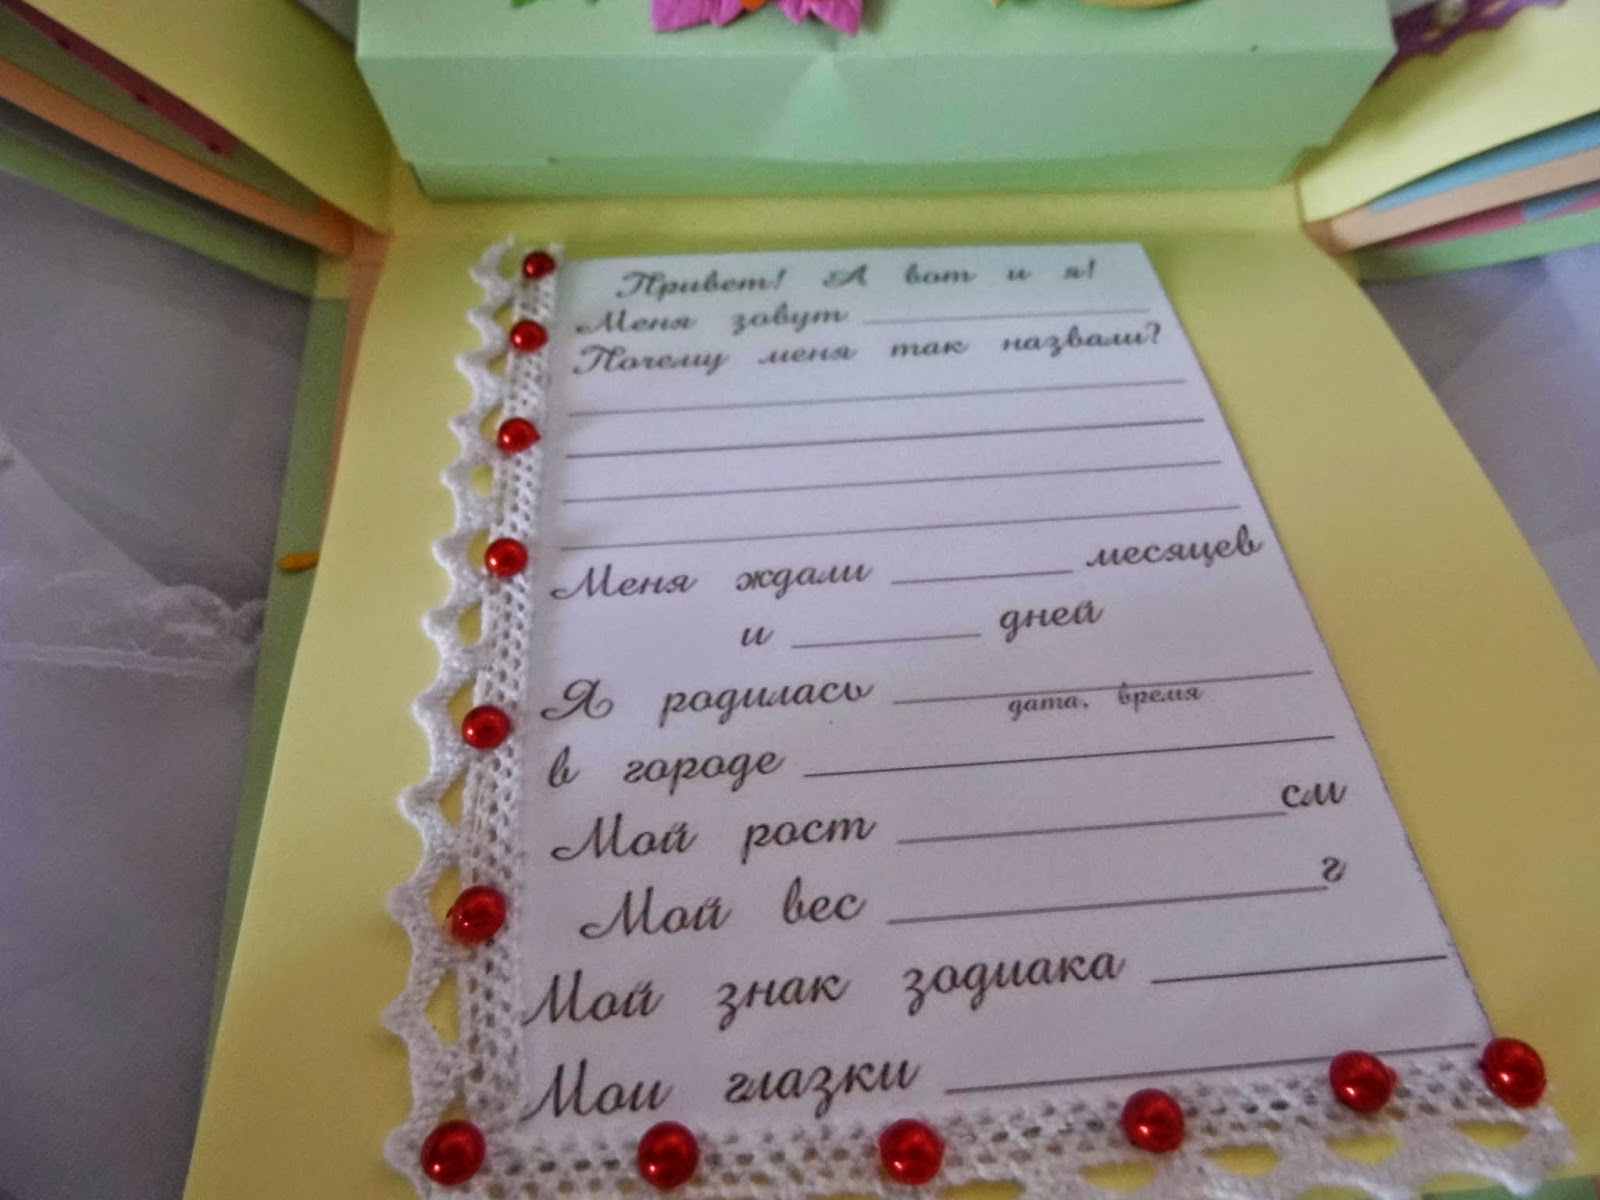 Привет! А вот и я!
Меня зовут
Почему меня так назвали?
Меня ждали месяцев
и дней
Я родилась
дата, время
в городе
Мой рост см
Мой вес г
Мой знак зодиака
Мои глазки